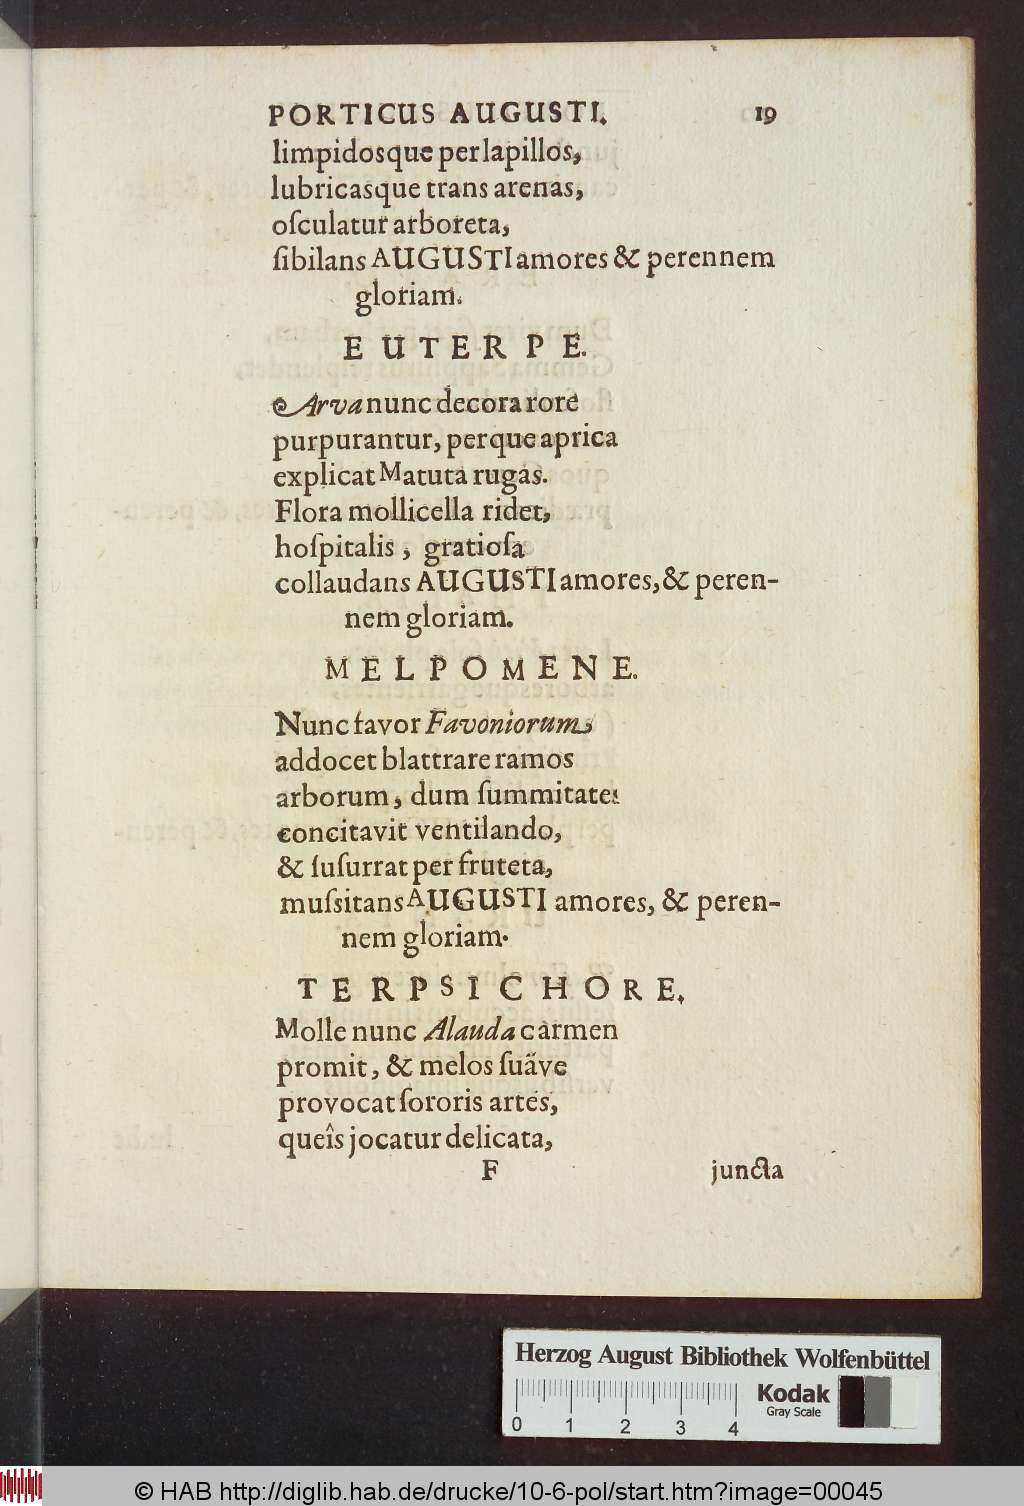 PORTICUS AUGUSTI. 19
limpidosque per lapillos,
lubricasque trans arenas,
oſculatur arboreta,
ſibilans AUGUSTI amores & perennem
gloriam.
EUTERPE.
Arva nunc decora rore
purpurantur, perque aprica
explicat Matuta rugas.
Flora mollicella ridet,
hoſpitalis, gratioſa
collaudans AUGUSTI amores, & peren-
nem gloriam.
MELPOMENE.
Nunc favor Favoniorum
addocet blattrare ramos
arborum, dum ſummitates
concitavit ventilando,
& ſuſurrat per fruteta,
muſsitans AUGUSTI amores, & peren-
nem gloriam.
TERPSICHORE.
Molle nunc Alauda carmen
promit, & melos ſuäve
provocat ſororis artes,
queîs jocatur delicata,
F juncta
Herzog August Bibliothek Wolfenbüttel
0 1 2 3 4
Kodak
Gray Scale
© HAB http://diglib.hab.de/drucke/10-6-pol/start.htm?image=00045